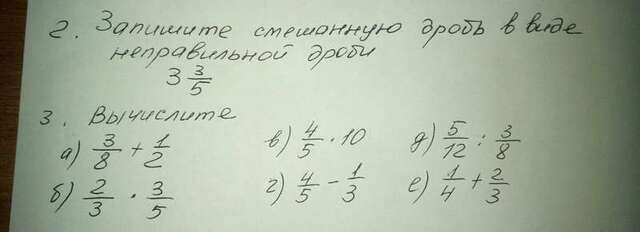 2. Запишите смешанную дробь в виде
неправильной дроби
3 3/5
3. Вычислите
а) 3/8 + 1/2 в) 4/5 · 10 д) 5/12 : 3/8
б) 2/3 · 3/5 г) 4/5 - 1/3 е) 1/4 + 2/3